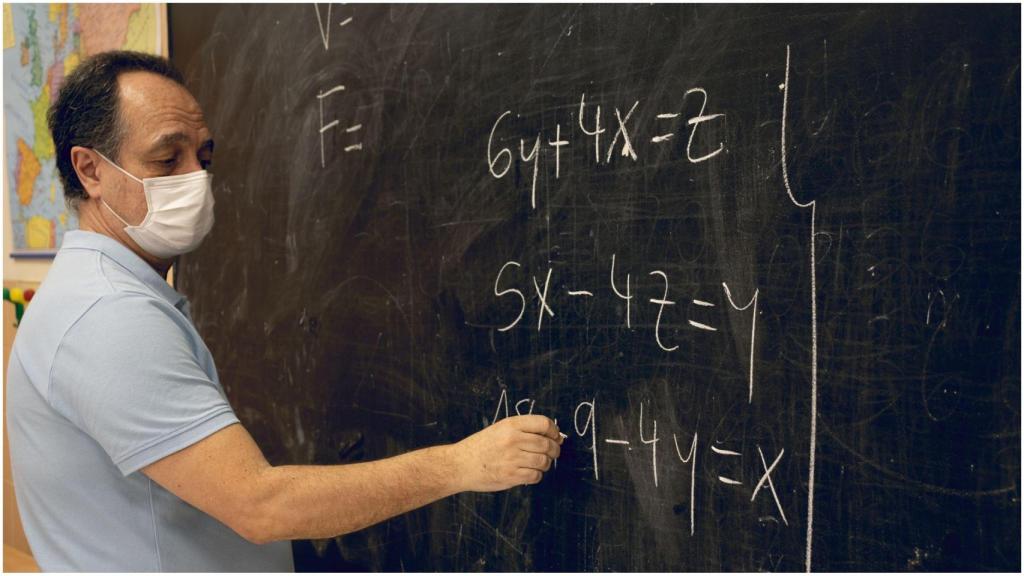 V=
F=
6y+4x=z
5x-4z=y
9-4y=x